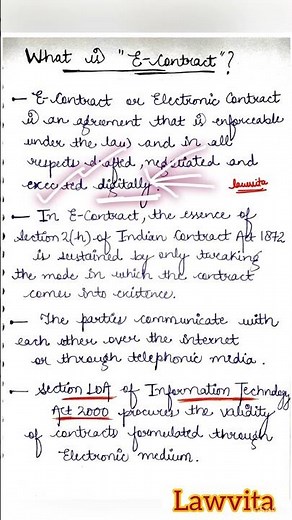 What is "E-Contract"?
- E-Contract or Electronic Contract
is an agreement that is enforceable
under the law and in all
respects drafted, negotiated and
executed digitally.
lawvita
- In E-Contract, the essence of
Section 2(h) of Indian Contract Act 1872
is sustained by only tweaking
the mode in which the contract
comes into existence.
- The parties communicate with
each other over the internet
or through telephonic media.
- Section 10A of Information Technology
Act 2000 procures the validity
of contracts formulated through
Electronic medium.
Lawvita